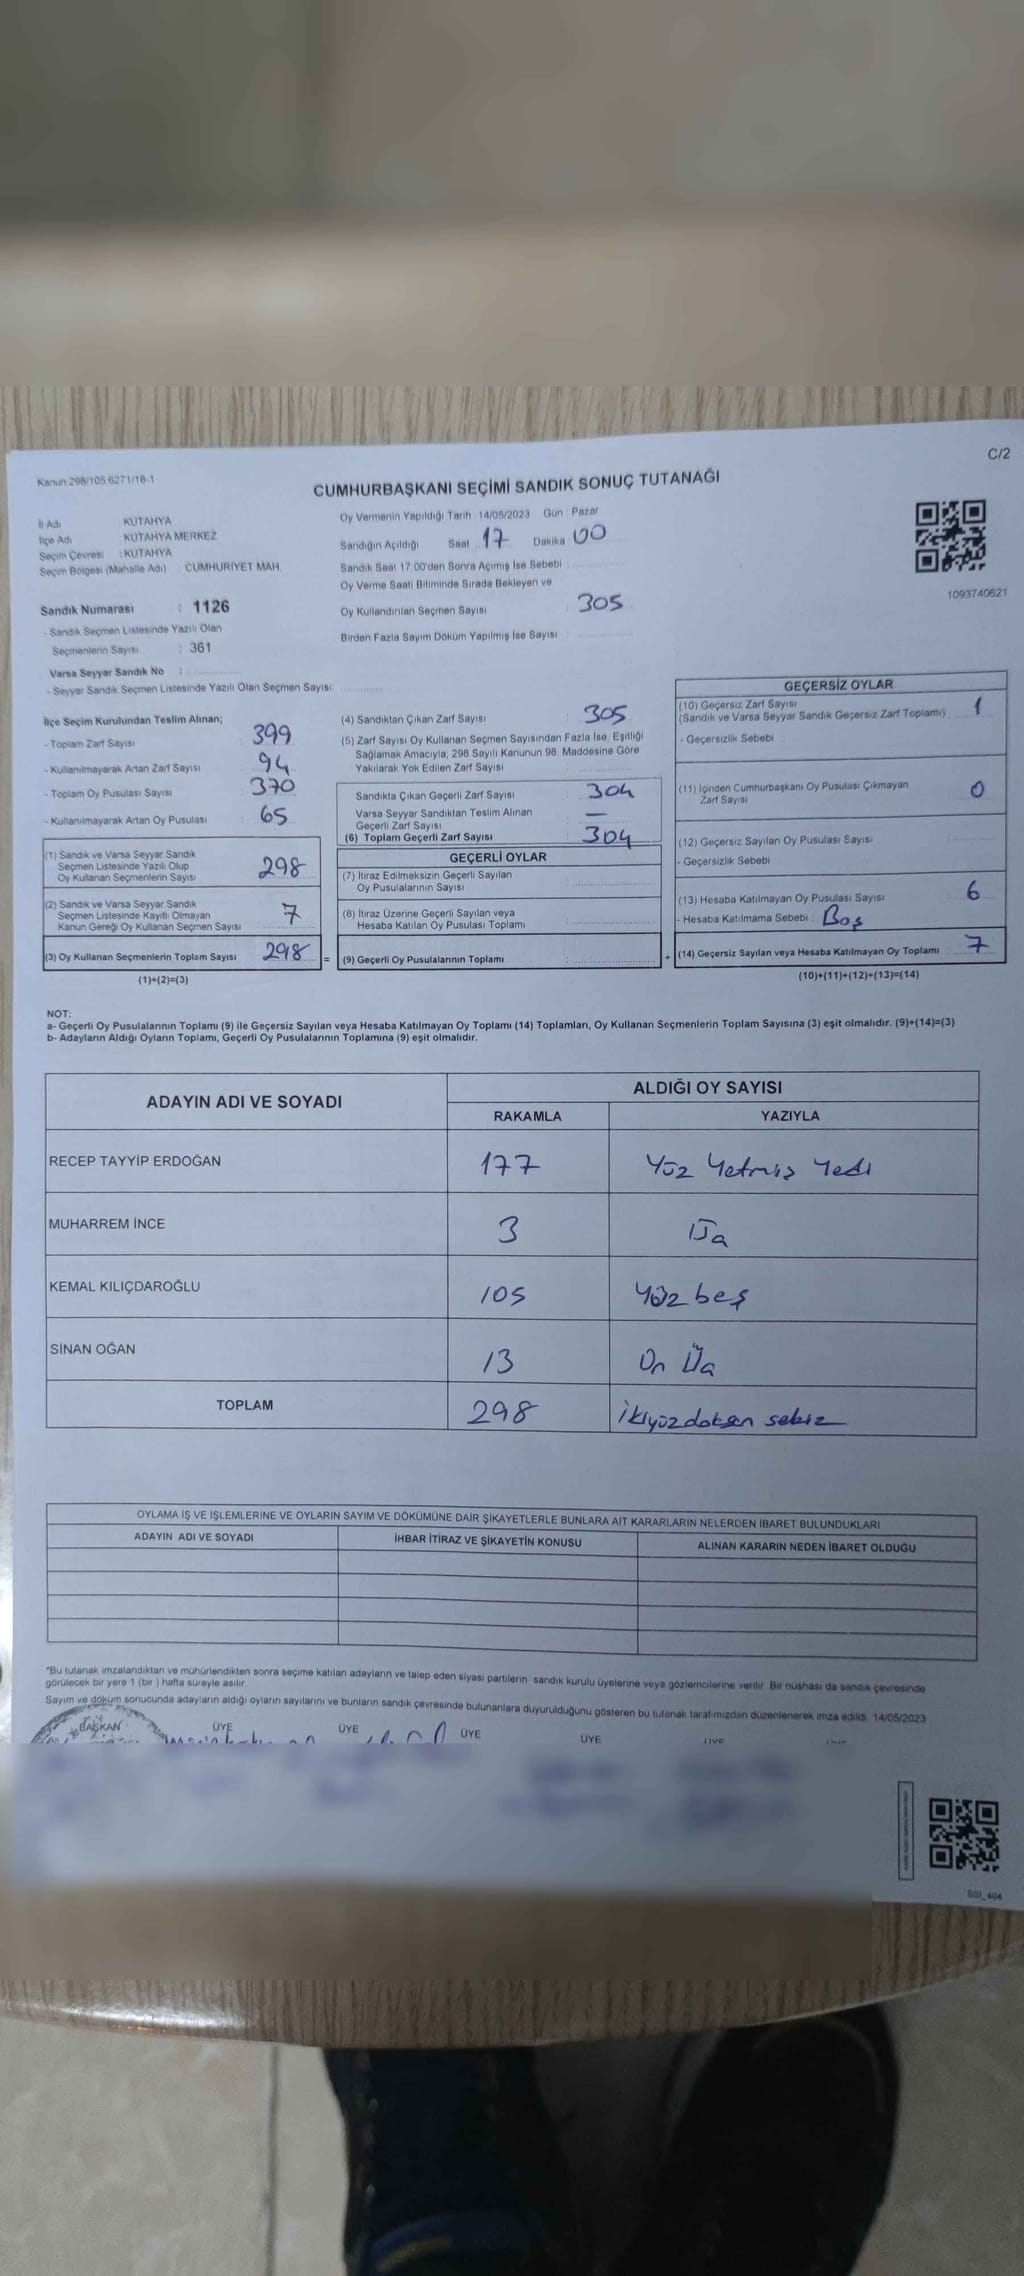 C/2
Kanun:298/105;6271/18-1
CUMHURBAŞKANI SEÇİMİ SANDIK SONUÇ TUTANAĞI
İl Adı : KÜTAHYA
İlçe Adı : KÜTAHYA MERKEZ
Seçim Çevresi : KÜTAHYA
Seçim Bölgesi (Mahalle Adı) : CUMHURİYET MAH.
Oy Vermenin Yapıldığı Tarih : 14/05/2023 Gün : Pazar
Sandığın Açıldığı Saat 17 Dakika 00
Sandık Saat 17.00'den Sonra Açımış İse Sebebi :
Oy Verme Saati Bitiminde Sırada Bekleyen ve
Oy Kullandırılan Seçmen Sayısı : 305
Birden Fazla Sayım Döküm Yapılmış İse Sayısı :
1093740621
Sandık Numarası : 1126
- Sandık Seçmen Listesinde Yazılı Olan
Seçmenlerin Sayısı : 361
Varsa Seyyar Sandık No :
- Seyyar Sandık Seçmen Listesinde Yazılı Olan Seçmen Sayısı:
İlçe Seçim Kurulundan Teslim Alınan;
- Toplam Zarf Sayısı 399
- Kullanılmayarak Artan Zarf Sayısı 94
- Toplam Oy Pusulası Sayısı 370
- Kullanılmayarak Artan Oy Pusulası 65
(1) Sandık ve Varsa Seyyar Sandık
Seçmen Listesinde Yazılı Olup
Oy Kullanan Seçmenlerin Sayısı 298
(2) Sandık ve Varsa Seyyar Sandık
Seçmen Listesinde Kayıtlı Olmayan
Kanun Gereği Oy Kullanan Seçmen Sayısı 7
(3) Oy Kullanan Seçmenlerin Toplam Sayısı 298 =
(1)+(2)=(3)
(4) Sandıktan Çıkan Zarf Sayısı : 305
(5) Zarf Sayısı Oy Kullanan Seçmen Sayısından Fazla İse, Eşitliği
Sağlamak Amacıyla; 298 Sayılı Kanunun 98. Maddesine Göre
Yakılarak Yok Edilen Zarf Sayısı :
Sandıkta Çıkan Geçerli Zarf Sayısı : 304
Varsa Seyyar Sandıktan Teslim Alınan
Geçerli Zarf Sayısı : —
(6) Toplam Geçerli Zarf Sayısı : 304
GEÇERLİ OYLAR
(7) İtiraz Edilmeksizin Geçerli Sayılan
Oy Pusulalarının Sayısı :
(8) İtiraz Üzerine Geçerli Sayılan veya
Hesaba Katılan Oy Pusulası Toplamı :
(9) Geçerli Oy Pusulalarının Toplamı : +
GEÇERSİZ OYLAR
(10) Geçersiz Zarf Sayısı
(Sandık ve Varsa Seyyar Sandık Geçersiz Zarf Toplamı) : 1
- Geçersizlik Sebebi :
(11) İçinden Cumhurbaşkanı Oy Pusulası Çıkmayan
Zarf Sayısı : 0
(12) Geçersiz Sayılan Oy Pusulası Sayısı :
- Geçersizlik Sebebi :
(13) Hesaba Katılmayan Oy Pusulası Sayısı : 6
- Hesaba Katılmama Sebebi : Boş
(14) Geçersiz Sayılan veya Hesaba Katılmayan Oy Toplamı : 7
(10)+(11)+(12)+(13)=(14)
NOT:
a- Geçerli Oy Pusulalarının Toplamı (9) ile Geçersiz Sayılan veya Hesaba Katılmayan Oy Toplamı (14) Toplamları, Oy Kullanan Seçmenlerin Toplam Sayısına (3) eşit olmalıdır. (9)+(14)=(3)
b- Adayların Aldığı Oyların Toplamı, Geçerli Oy Pusulalarının Toplamına (9) eşit olmalıdır.
ADAYIN ADI VE SOYADI
ALDIĞI OY SAYISI
RAKAMLA YAZIYLA
RECEP TAYYİP ERDOĞAN 177 Yüz Yetmiş Yedi
MUHARREM İNCE 3 Üç
KEMAL KILIÇDAROĞLU 105 Yüz beş
SİNAN OĞAN 13 On Üç
TOPLAM 298 İkiyüzdoksan sekiz
OYLAMA İŞ VE İŞLEMLERİNE VE OYLARIN SAYIM VE DÖKÜMÜNE DAİR ŞİKAYETLERLE BUNLARA AİT KARARLARIN NELERDEN İBARET BULUNDUKLARI
ADAYIN ADI VE SOYADI İHBAR İTİRAZ VE ŞİKAYETİN KONUSU ALINAN KARARIN NEDEN İBARET OLDUĞU
*Bu tutanak imzalandıktan ve mühürlendikten sonra seçime katılan adayların ve talep eden siyasi partilerin sandık kurulu üyelerine veya gözlemcilerine verilir. Bir nüshası da sandık çevresinde
görülecek bir yere 1 (bir) hafta süreyle asılır.
Sayım ve döküm sonucunda adayların aldığı oyların sayılarını ve bunların sandık çevresinde bulunanlara duyurulduğunu gösteren bu tutanak tarafımızdan düzenlenerek imza edildi. 14/05/2023
BAŞKAN ÜYE ÜYE ÜYE ÜYE
SSI_404